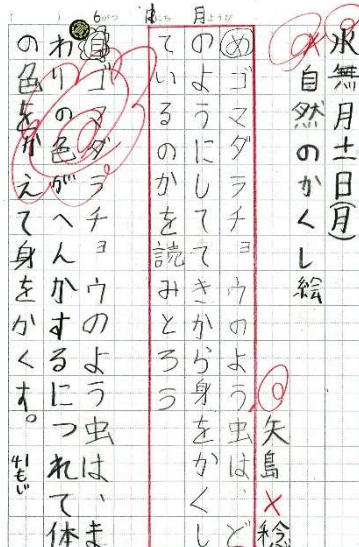 6がつ にち 月ようび
水無月十一日(月)
自然のかくし絵
矢島 稔
めゴマダラチョウのよう虫は、ど
のようにしててきから身をかくし
ているのかを読みとろう
自ゴマダラチョウのよう虫は、ま
わりの色がへんかするにつれて体
の色をかえて身をかくす。 41もじ